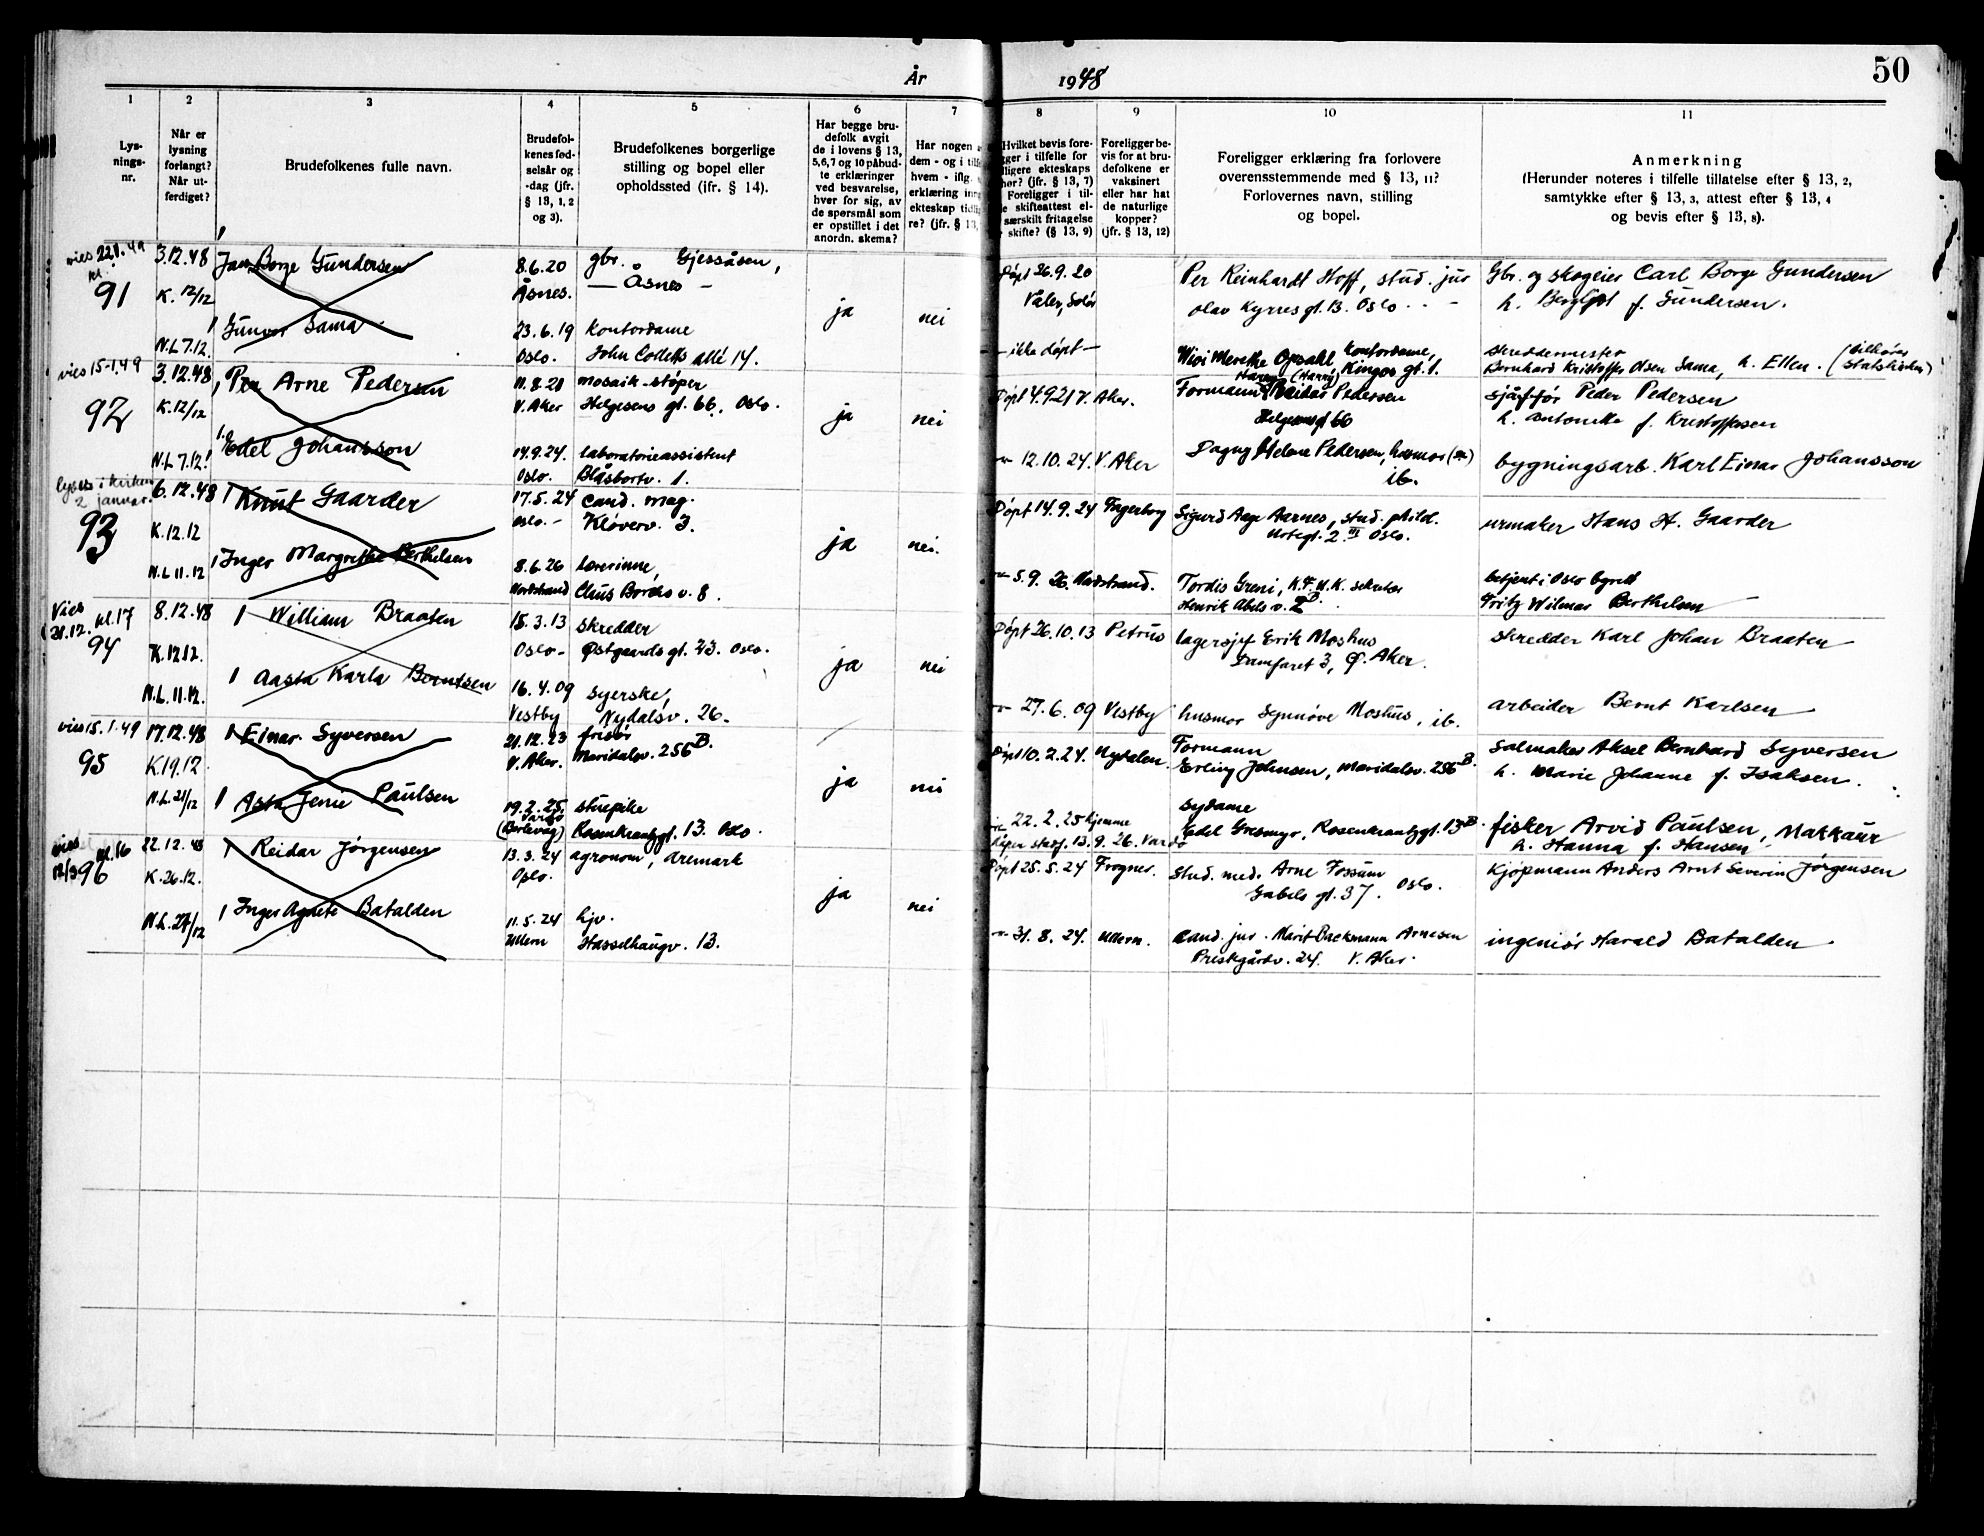 År 1948
50
1 2 3 4 5 6 7 8 9 10 11
Lys-
nings-
nr.
Når er
lysning
forlangt?
Når ut-
ferdiget?
Brudefolkenes fulle navn.
Brudefol-
kenes fød-
selsår og
-dag (jfr.
§ 13, 1, 2
og 3).
Brudefolkenes borgerlige
stilling og bopel eller
opholdssted (jfr. § 14).
Har begge bru-
defolk avgit
de i lovens § 13,
5,6,7 og 10 påbud-
te erklæringer
ved besvarelse,
hver for sig, av
de spørsmål som
er opstillet i det
anordn. skema?
Har nogen
dem - og i tilf
hvem - iflg.
erklæring inn
ekteskap tidl
re? (jfr. § 13,
Hvilket bevis fore-
ger i tilfelle for
ligere ekteskaps
hør? (jfr. § 13, 7)
Foreligger i til-
e skifteattest el-
særskilt fritagelse
skifte? (§ 13, 9)
Foreligger be-
vis for at bru-
defolkene er
vaksinert
eller har hat
de naturlige
kopper?
(jfr. § 13, 12)
Foreligger erklæring fra forlovere
overensstemmende med § 13, 11?
Forlovernes navn, stilling
og bopel.
Anmerkning
(Herunder noteres i tilfelle tillatelse efter § 13, 2,
samtykke efter § 13, 3, attest efter § 13, 4
og bevis efter § 13, 8).
vies 22.1.49
kl.
91
3.12.48
K. 12/12
N.L 7.12.
Jan Borge Gundersen
8.6.20
Åsnes.
gbr. Gjessåsen,
— Åsnes —
ja nei
Døpt 26.9.20
Våler, Solør
Per Reinhardt Hoff, stud. jur
Olav Kyrres gt. 13. Oslo
Gbr. og skogeier Carl Borge Gundersen
h. Bergljot f. Gundersen.
Gunvor Sama
23.6.19
Oslo.
kontordame
John Colletts allé 14.
— ikke døpt —
Wivi Merethe Opsahl, kontordame,
Kingos gt. 1.
Skreddermester
Bernhard Kristoffer Olsen Sama, h. Ellen. (tilhører
statskirken)
vies 15-1.49
92
3.12.48
K. 12/12
N.L 7.12!
Per Arne Pedersen
11.8.21
V. Aker
mosaik-støper
Helgesens gt. 66. Oslo.
ja nei
Døpt 4.9.21 V. Aker.
Formann Reidar Pedersen
Harry (Harry)
Helgesens gt 66
sjåffør Peder Pedersen
h. Antonette f. Kristoffersen
Edel Johansson
14.9.24.
Oslo.
laboratorieassistent
Blåsbortv. 1.
— 12.10.24. V. Aker
Dagny Helene Pedersen, husmor
ib.
bygningsarb. Karl Einar Johansson
lyses i kirken
2 januar.
93
6.12.48
K. 12.12
N.L 11.12
Knut Gaarder
17.5.24
Oslo. -
cand. mag.
Kløverv. 3.
ja nei.
Døpt 14.9.24 Fagerborg
Sigurd Aage Aarnes, stud. philol.
Urtegt. 2 III Oslo.
urmaker Hans H. Gaarder
Inger Margrethe Berthelsen
8.6.26
Nordstrand
Lærerinne,
Claus Borchs v. 8.
— 5.9.26. Nordstrand.
Tordis Greni, K.F.U.K. sekretær
Henrik Ibels v. 2 D.
betjent i Oslo byrett
Fritz Wilmar Berthelsen
Vies
21.12. kl. 17
94
8.12.48
K. 12.12.
N.L. 11.12.
William Braaten
15.3.13
Oslo -
skredder
Østgaards gt. 23. Oslo.
ja nei
Døpt 26.10.13 Petrus
lagersjef Erik Moshus
Damfaret 3, Ø. Aker.
skredder Karl Johan Braaten
Aasta Karla Berntsen
16.4.09
Vestby
syerske,
Nydalsv. 26.
— 27.6.09 Vestby
husmor Synnøve Moshus, ib.
arbeider Bernt Karlsen
vies 15.1.49
95
17.12.48
K. 19.12
N.L. 21/12
Einar Syversen
21.12.23
V. Aker.
frisør
Maridalsv. 256 B.
ja nei
Døpt 10.2.24. Nydalen.
Formann
Erling Johnsen, Maridalsv. 256 B.
Salmaker Aksel Bernhard Syversen
h. Marie Johanne f. Isaksen.
Asta Jenie Paulsen
19.2.25
Vardø
(Berlevåg)
stuepike
Rosenkrantzgt. 13. Oslo.
22.2.25 hjemme
døpen stadf. 13.9.26. Vardø
Sydame
Edel Gresmyr, Rosenkrantzgt. 13 B.
fisker Arvid Paulsen, Makkaur
h. Hanna f. Hansen
vies kl. 16
12/3
96
22.12.48
K. 26.12.
N.L. 27/12
Reidar Jørgensen
13.3.24
Oslo.
agronom, Aremark
ja nei
Døpt 25.5.24 Frogner.
stud. med. Arne Fossum
Gabels gt. 37. Oslo.
Kjøpmann Anders Arnt Severin Jørgensen
Inger Agnete Batalden
11.5.24
Ullern
hjv.
Hasselhaugv. 13.
— 31.8.24. Ullern.
Cand. jur. Marit Backmann Arnesen
Prestgårdv. 24. V. Aker.
ingeniør Harald Batalden